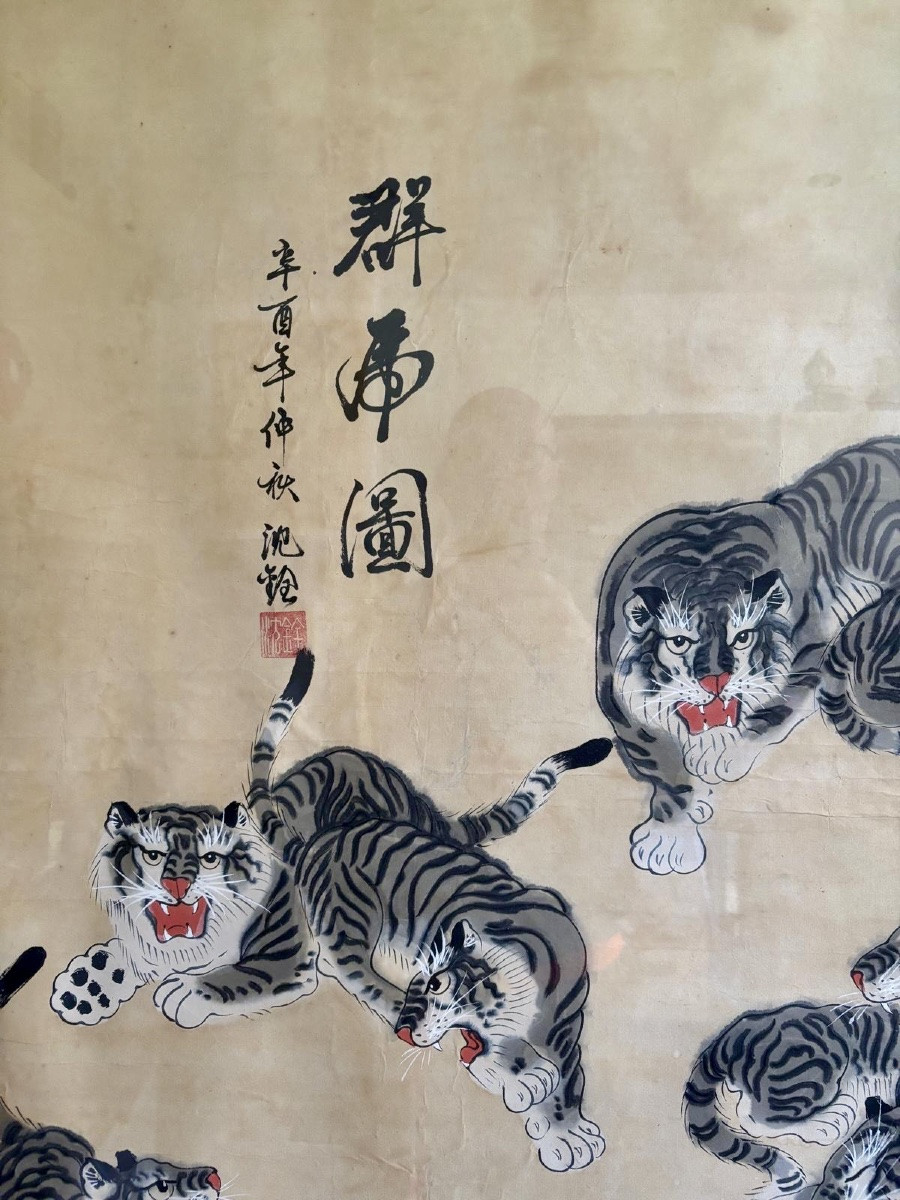 群虎圖
辛酉年仲秋沈銓
沈銓